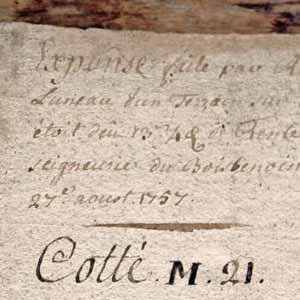 Exponse faite par
Luneau d'un Terrain sur
étoit dû 13 ₰ de Rente
seigneurie du Boisbenoit
27e aoust 1757.
Cotté. M. 21.